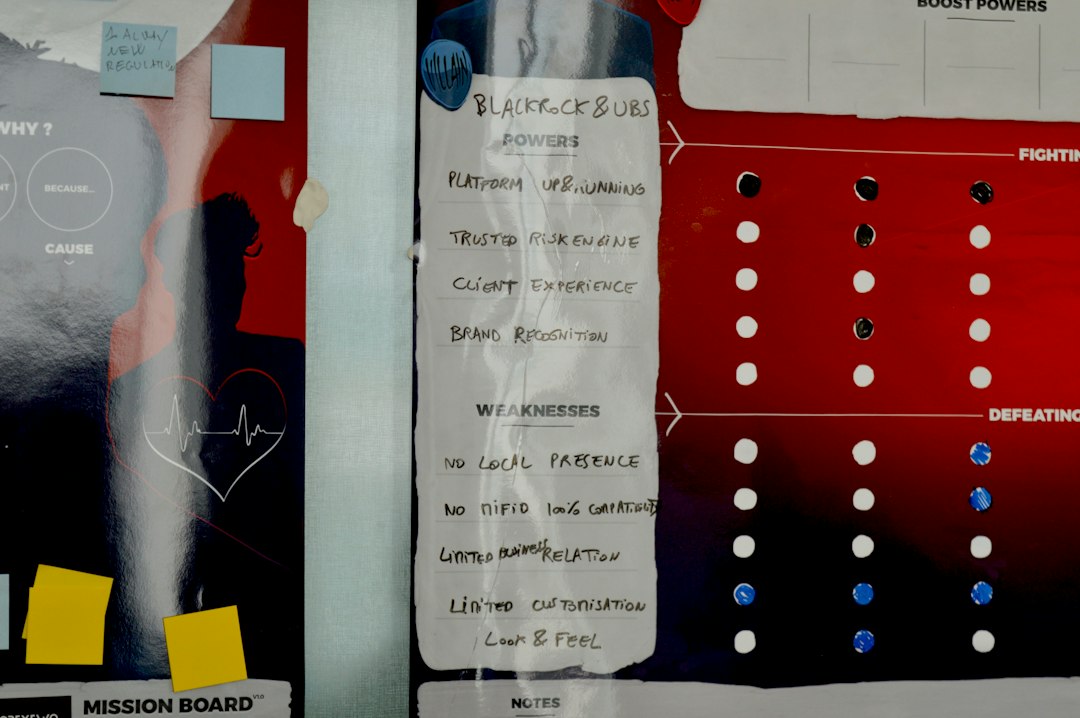 BOOST POWERS
1 ALWAY
NEW
REGULATION
VILLAIN
BLACKROCK & UBS
WHY ?
POWERS
FIGHTIN
NT
BECAUSE...
PLATFORM UP & RUNNING
CAUSE
TRUSTED RISK ENGINE
CLIENT EXPERIENCE
BRAND RECOGNITION
WEAKNESSES
DEFEATING
NO LOCAL PRESENCE
NO MIFID 100% COMPATIBILITY
LIMITED BUSINESS RELATION
LIMITED CUSTOMISATION
LOOK & FEEL
MISSION BOARD V1.0
NOTES